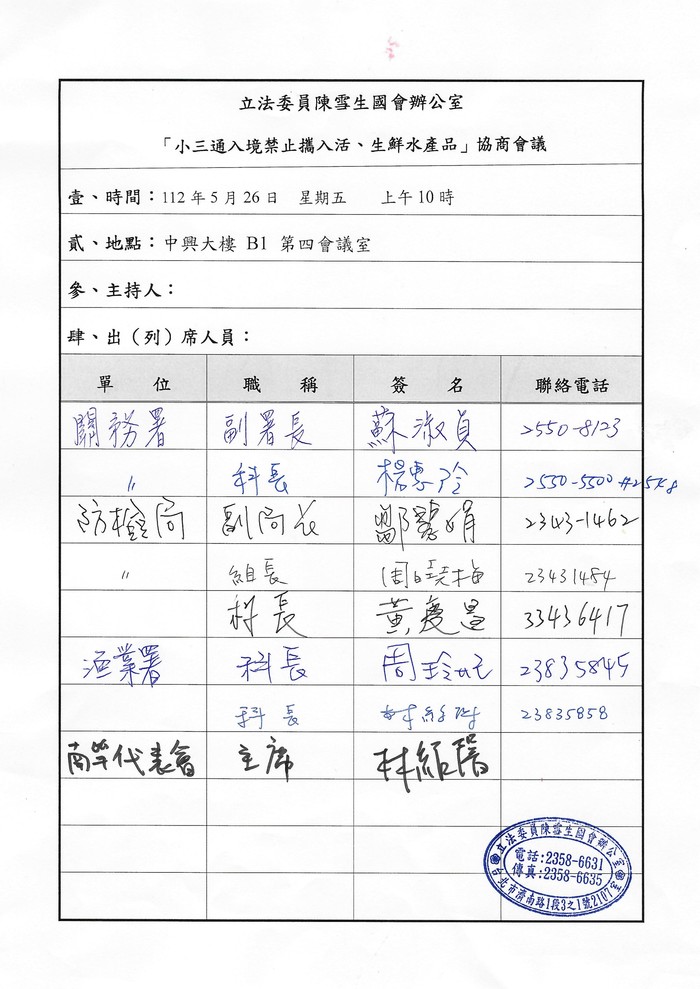 立法委員陳雪生國會辦公室
「小三通入境禁止攜入活、生鮮水產品」協商會議
壹、時間：112年5月26日 星期五 上午10時
貳、地點：中興大樓 B1 第四會議室
參、主持人：
肆、出（列）席人員：
單 位 職 稱 簽 名 聯絡電話
關務署 副署長 蘇淑貞 2550-8123
〃 科長 楊 2550-5500
防檢局 副局長 鄒慧娟 2343-1462
〃 組長 周曉梅 23431484
科長 黃慶昌 33436417
漁業署 科長 周玲 23835845
科長 23835858
南竿代表會 主席 林
立法委員陳雪生國會辦公室
電話:2358-6631
傳真:2358-6635
台北市濟南路1段3之1號2107室